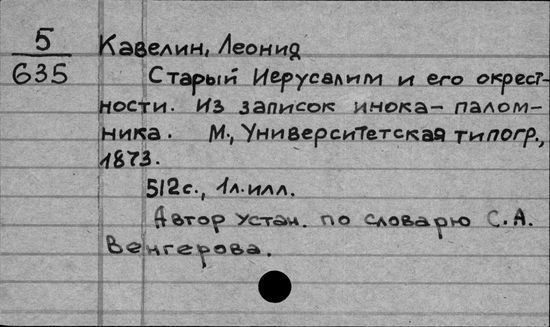 5
635
Кавелин, Леонид
Старый Иерусалим и его окрест-
ности. Из записок инока-палом-
ника. М., Университетская типогр.,
1873.
512с., 1л.илл.
Автор устан. по словарю С.А.
Венгерова.